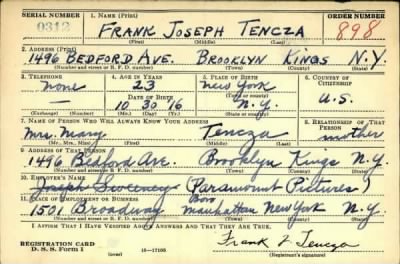 SERIAL NUMBER 1. NAME (Print) ORDER NUMBER
0312 FRANK JOSEPH TENCZA 898
(First) (Middle) (Last)
2. ADDRESS (Print)
1496 BEDFORD AVE. BROOKLYN KINGS N.Y.
(Number and street or R. F. D. number) (Town) (County) (State)
3. TELEPHONE 4. AGE IN YEARS 5. PLACE OF BIRTH 6. COUNTRY OF CITIZENSHIP
None 23 New York
DATE OF BIRTH (Town or county)
— 10 30 16 N.Y. U.S.
(Exchange) (Number) (Mo.) (Day) (Yr.) (State or country)
7. NAME OF PERSON WHO WILL ALWAYS KNOW YOUR ADDRESS 8. RELATIONSHIP OF THAT PERSON
Mrs. Mary Tencza mother
(Mr., Mrs., Miss) (First) (Middle) (Last)
9. ADDRESS OF THAT PERSON
1496 Bedford Ave. Brooklyn Kings N.Y.
(Number and street or R. F. D. number) (Town) (County) (State)
10. EMPLOYER'S NAME
Joseph Sweeney (Paramount Pictures)
11. PLACE OF EMPLOYMENT OR BUSINESS Boro
1501 Broadway Manhattan New York N.Y.
(Number and street or R. F. D. number) (Town) (County) (State)
I AFFIRM THAT I HAVE VERIFIED ABOVE ANSWERS AND THAT THEY ARE TRUE.
REGISTRATION CARD
D. S. S. Form 1 (over) 16—17105 Frank J. Tencza
(Registrant's signature)